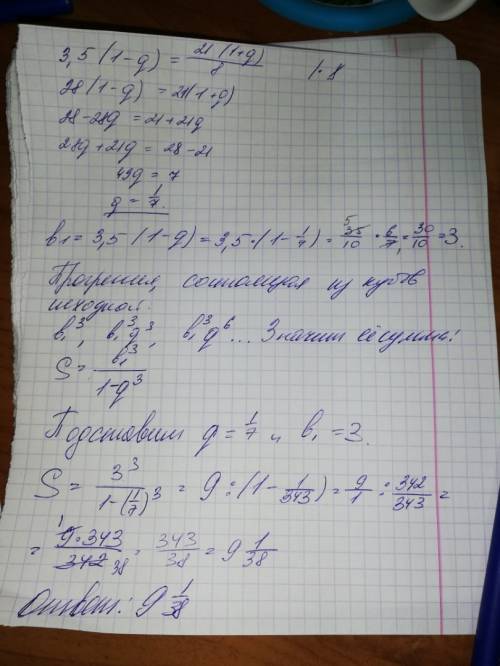 3,5 (1-q) = 21 (1+q) / 8 | · 8
28 (1-q) = 21(1+q)
28 - 28q = 21 + 21q
28q + 21q = 28 - 21
49q = 7
q = 1/7.
b₁ = 3,5 (1-q) = 3,5 · (1 - 1/7) = 35/10 · 6/7 = 30/10 = 3.
Прогрессия, состоящая из кубов
исходной:
b₁³, b₁³q³, b₁³q⁶ ... Значит её сумма:
S = b₁³ / 1-q³
Подставим q = 1/7 и b₁ = 3.
S = 3³ / 1-(1/7)³ = 9 : (1 - 1/343) = 9/1 : 342/343 =
= 9·343 / 342 = 343/38 = 9 1/38
Ответ: 9 1/38